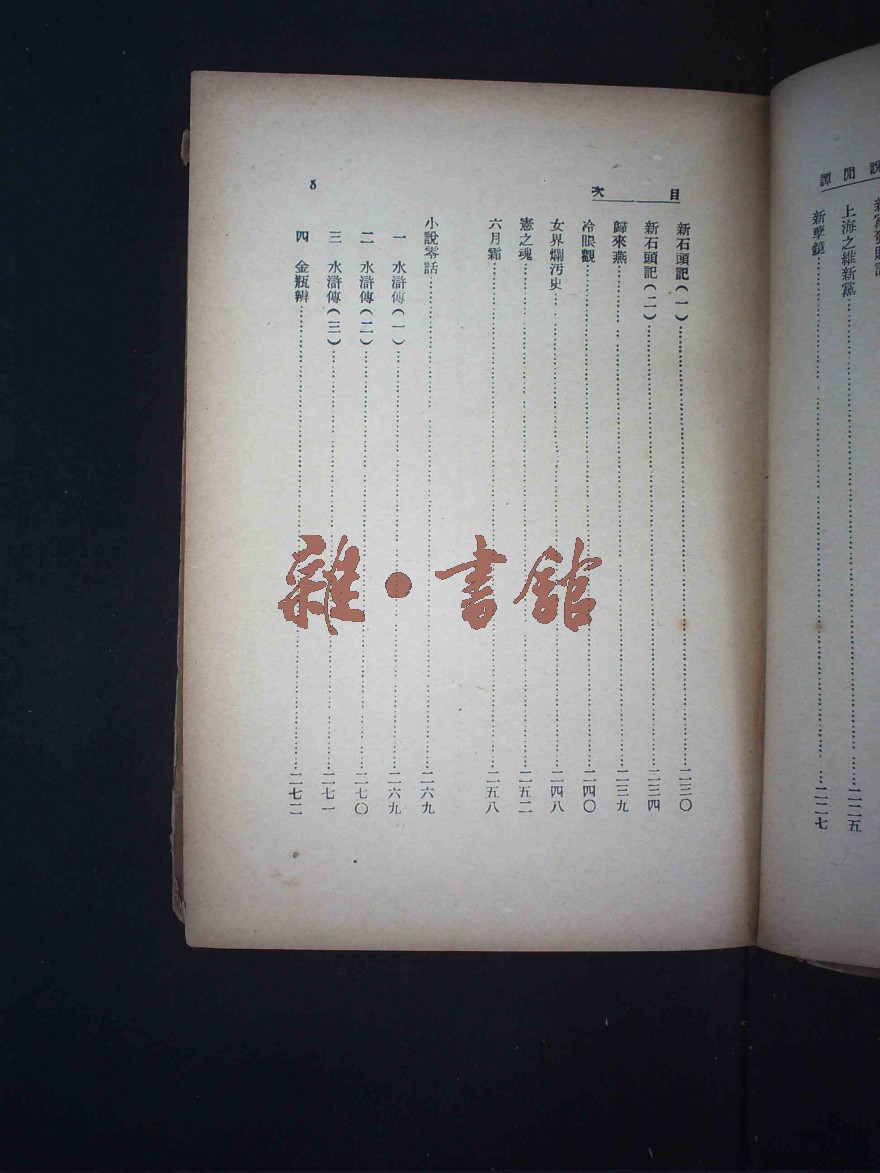 說閒譚
上海之維新黨………二二五
新孽鏡………二二七
目次
新石頭記(一)………二三〇
新石頭記(二)………二三四
歸來燕………二三九
冷眼觀………二四〇
女界爛污史………二四八
憲之魂………二五二
六月霜………二五八
小說零話………二六九
一 水滸傳(一)………二六九
二 水滸傳(二)………二七〇
三 水滸傳(三)………二七一
四 金瓶辨………二七二
8
雜·書館